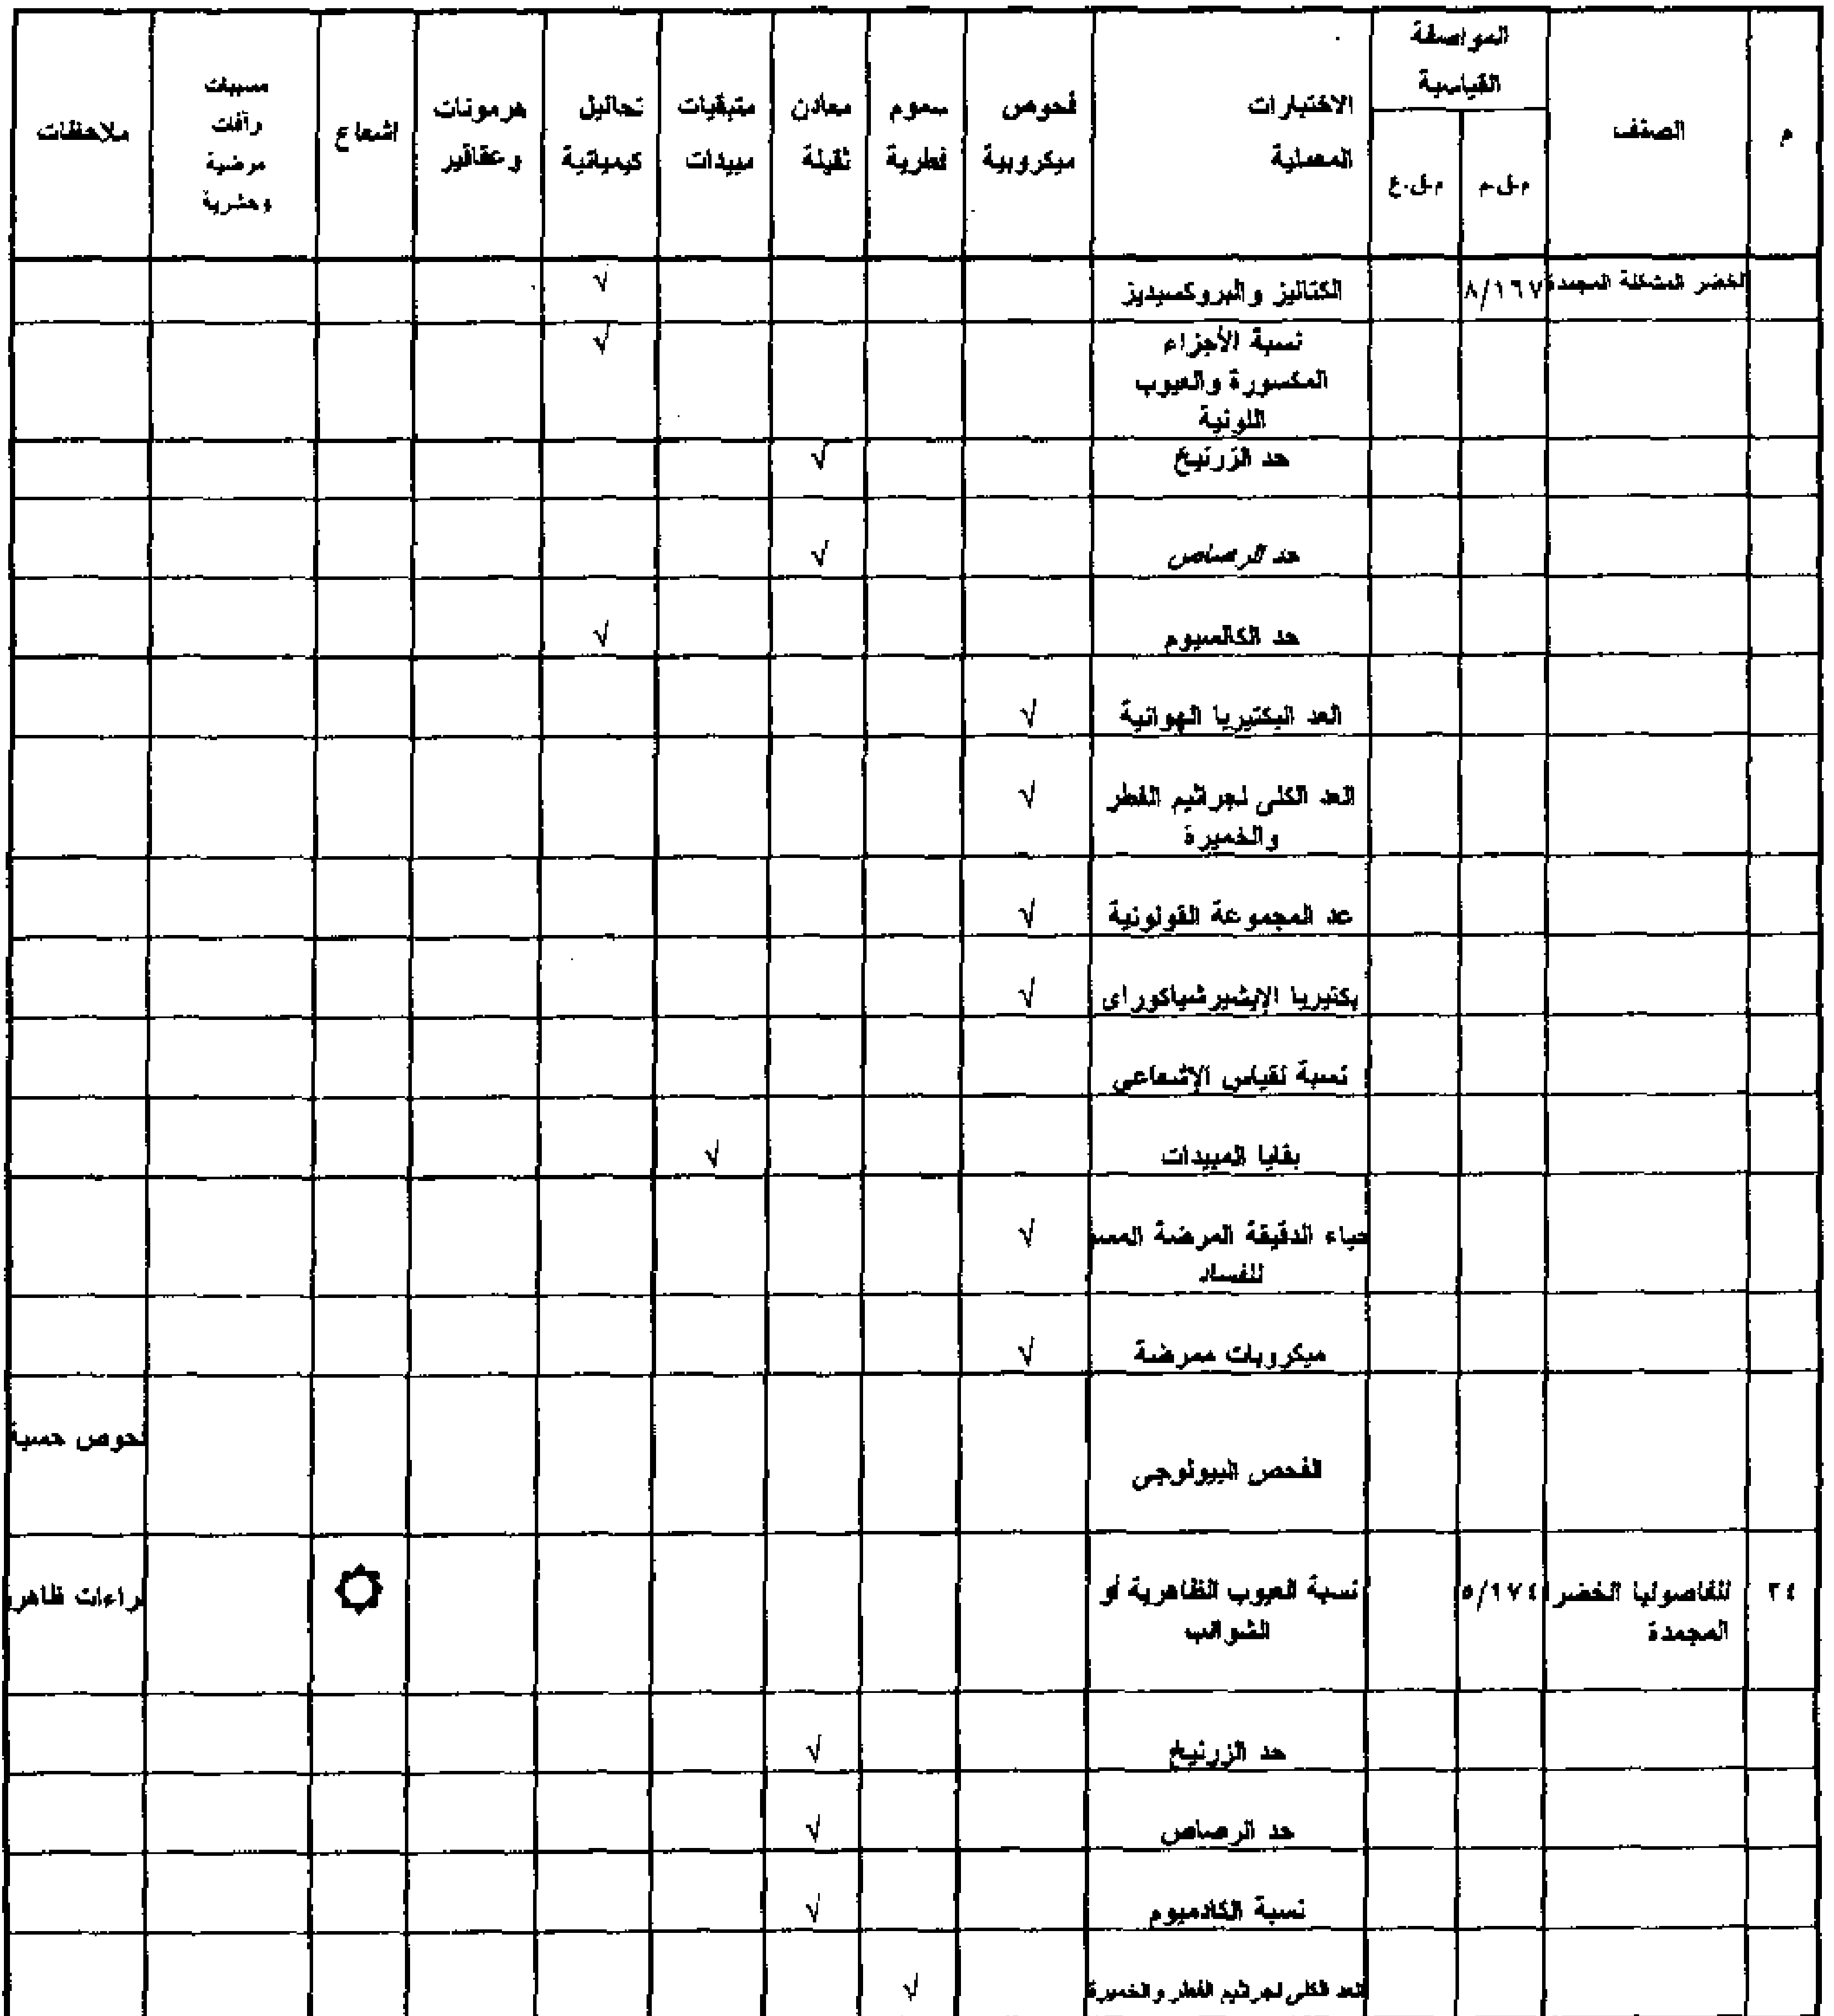 م	الصنف	المواصفة القياسية	الاختبارات المعملية	فحوص ميكروبية	سموم فطرية	معادن ثقيلة	متبقيات مبيدات	تحاليل كيميائية	هرمونات وعقاقير	اشعاع	مسببات وآفات مرضية وحشرية	ملاحظات
م.ق.م	م.ق.ع
الخضر المشكلة المجمدة	٨/١٦٧	الكتاليز والبروكسيديز	√
نسبة الأجزاء	√
المكسورة والعيوب
اللونية
حد الزرنيخ	√
حد الرصاص	√
حد الكالسيوم	√
العد البكتيريا الهوائية	√
العد الكلى لجراثيم الفطر	√
والخميرة
عد المجموعة القولونية	√
بكتيريا الإيشيرشياكوراى	√
نسبة لقياس الإشعاعى
بقايا المبيدات	√
حياء الدقيقة المرضة المسب	√
للفساد
ميكروبات ممرضة	√
فحوص حسية
الفحص البيولوجى
٢٤	للفاصوليا الخضر	٥/١٧٤	نسبة العيوب الظاهرية أو	راءات ظاهر
المجمدة	الشوائب
حد الزرنيخ	√
حد الرصاص	√
نسبة الكادميوم	√
العد الكلى لجراثيم الفطر والخميرة	√